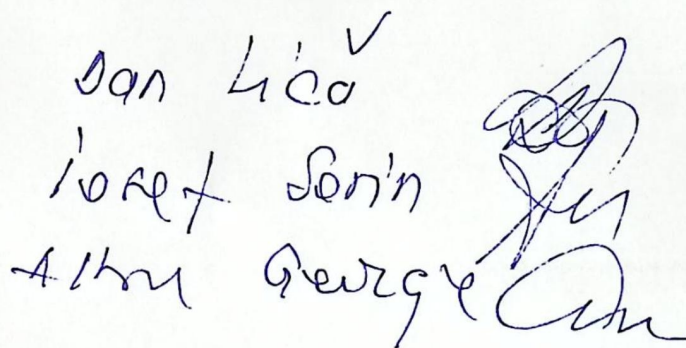 Dan Lică
Iosef Sorin
George